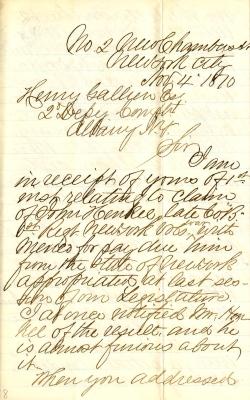 No. 2 New Chambers St
New York City
Nov 4th 1870
Henry Gallien Esq
2d Depy Compt
Albany N.Y.
Sir
I am
in receipt of yours of 1st
inst relative to claim
of John Henkel late Co. B.
1st Regt New York Vols war with
Mexico for pay due him
from the State of New York
appropriated at last ses-
sion of our Legislature.
I at once notified Mr. Hen-
kel of the result, and he
is almost furious about
it.
When you addressed
8